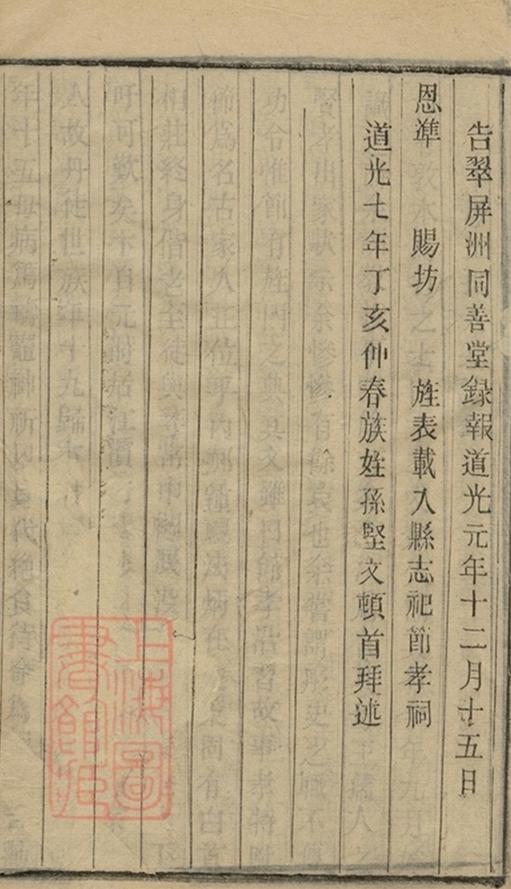 告翠屏洲同善堂錄報道光元年十二月十五日
恩準 賜坊 旌表載入縣志祀節孝祠
道光七年丁亥仲春族姪孫堅文頓首拜述
上海圖書館藏